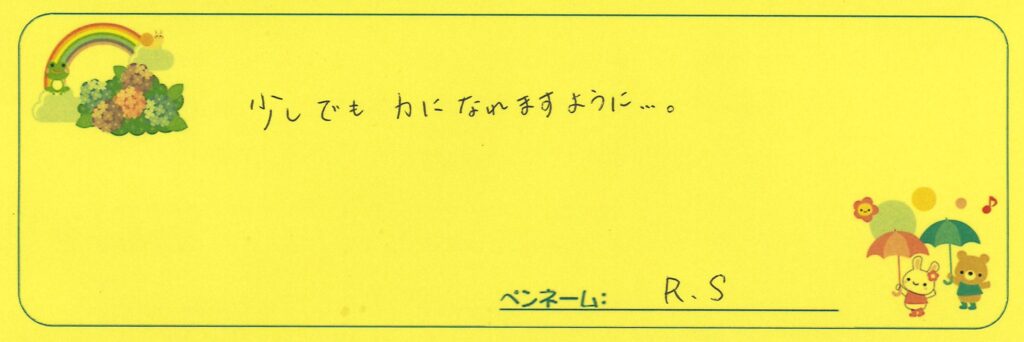 少しでも 力になれますように…。
ペンネーム: R.S